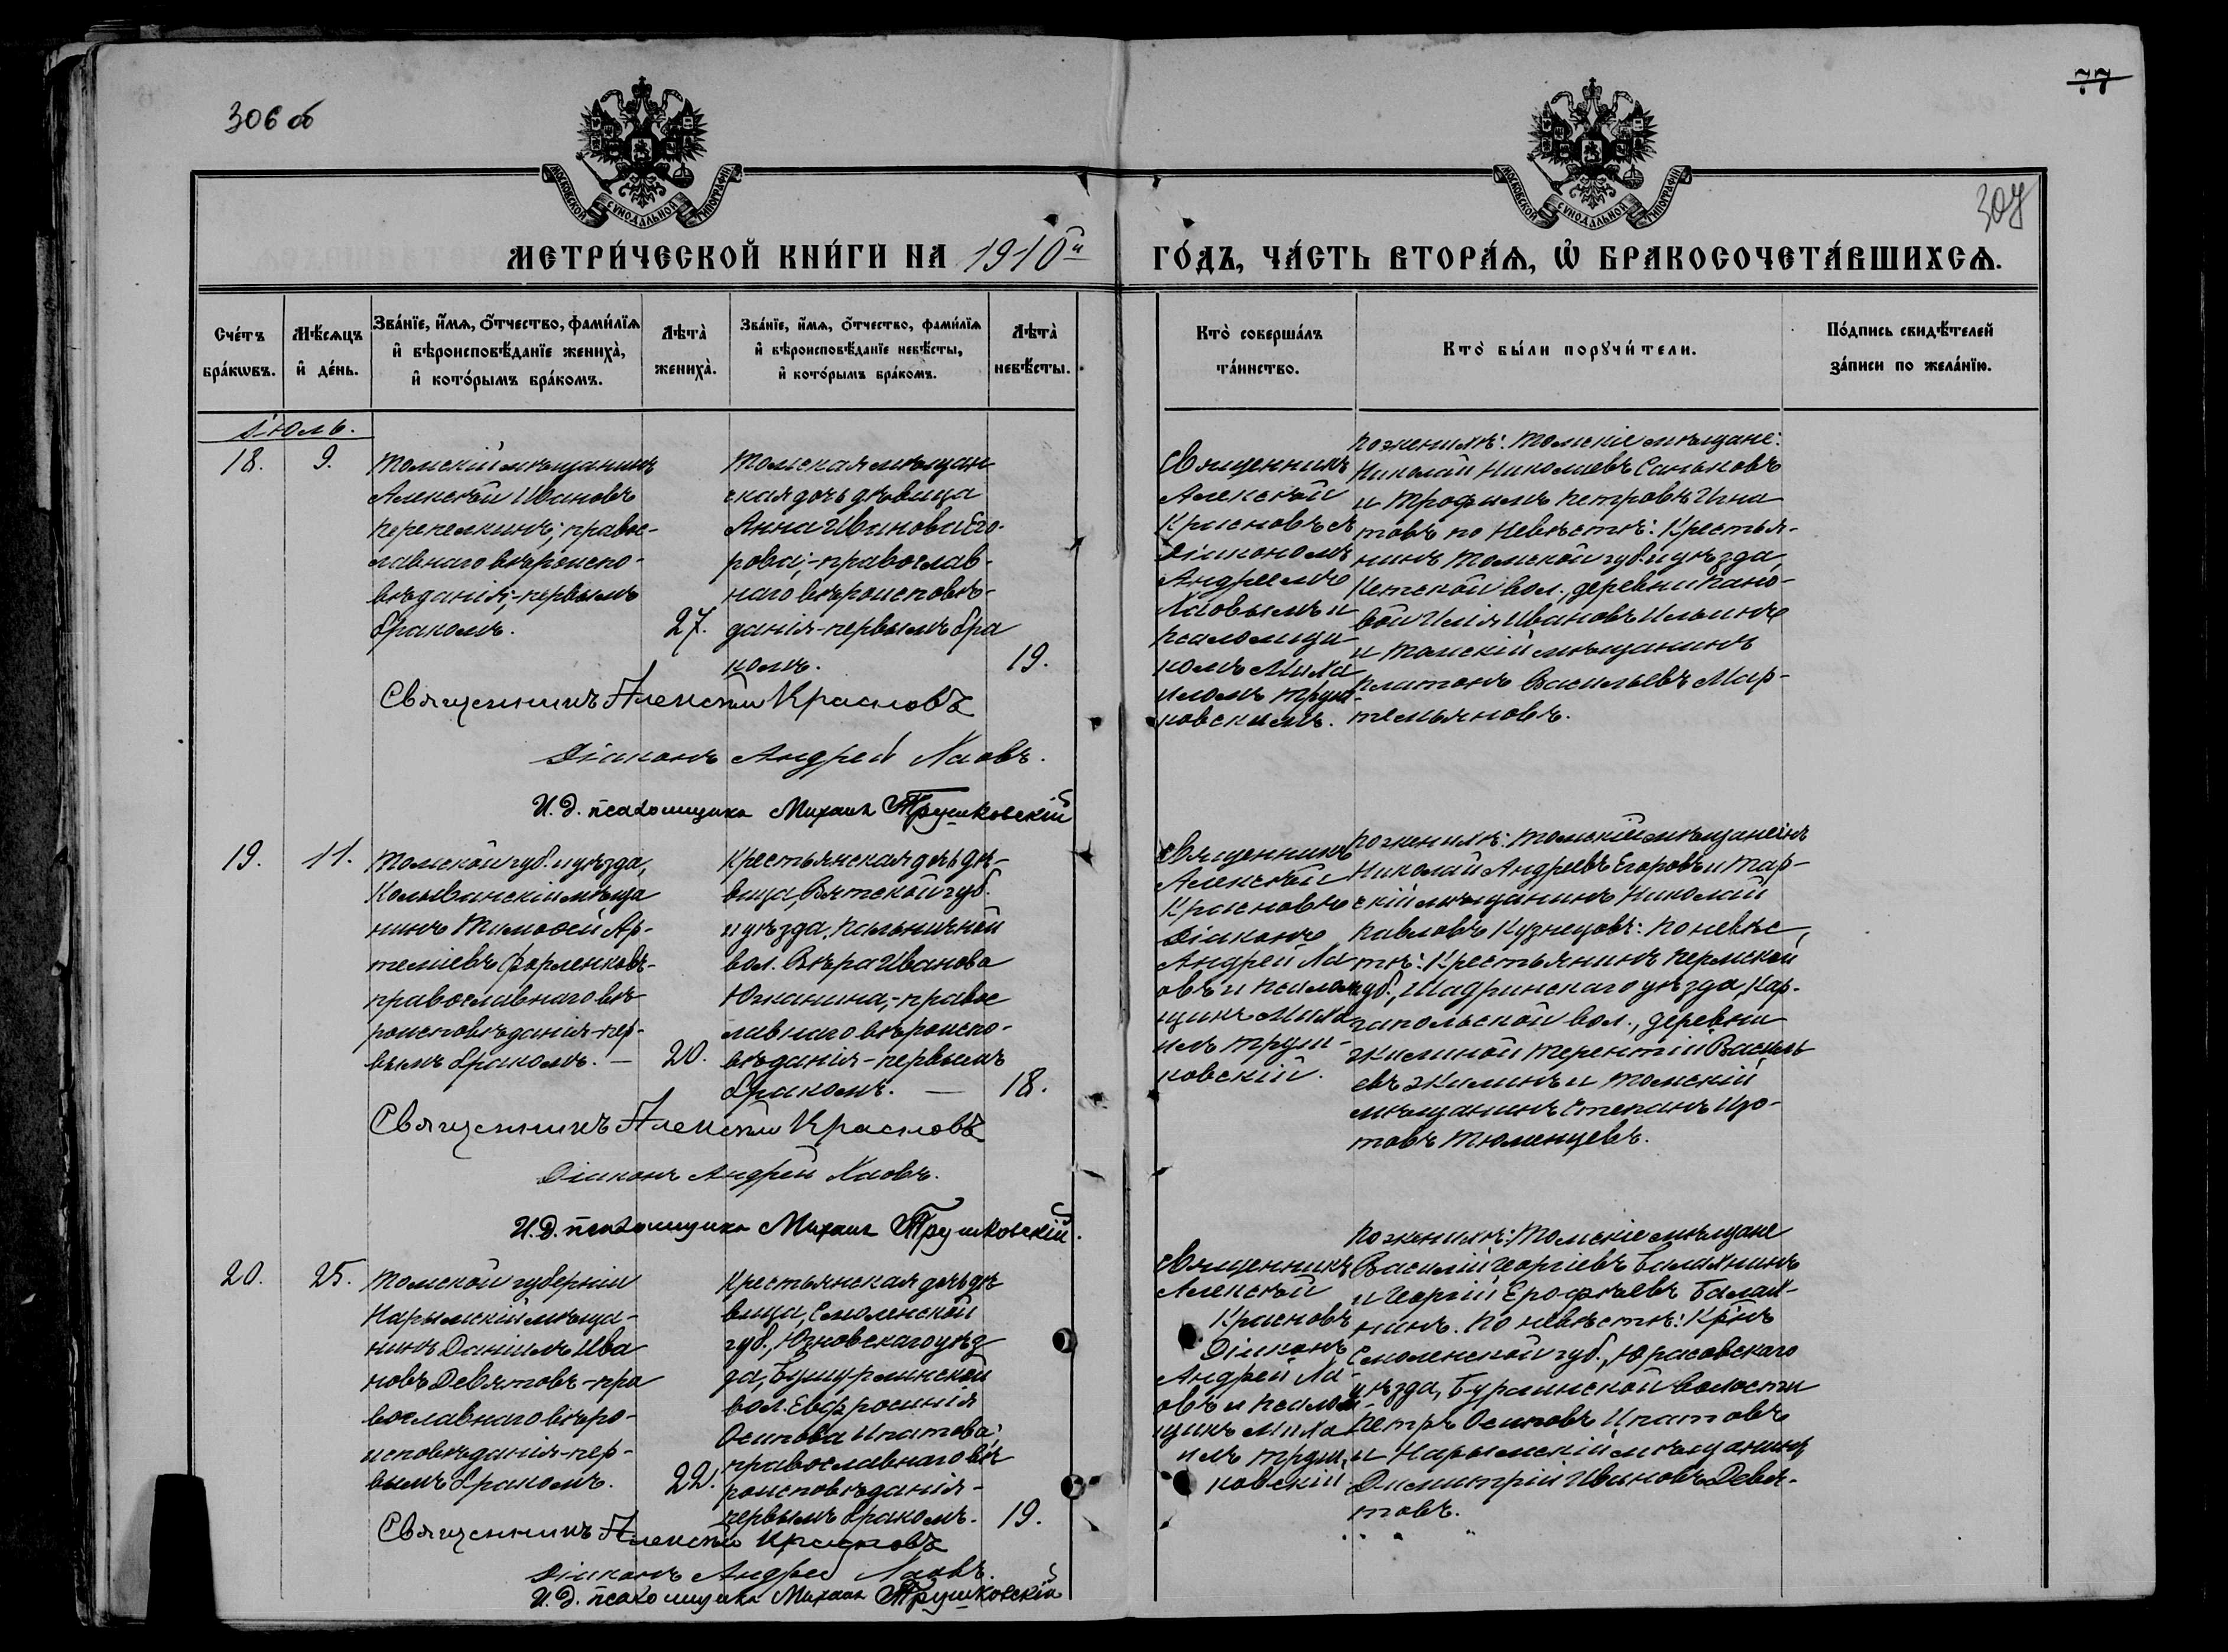 306 об
77
307
МОСКОВСКОЙ СѴНОДАЛЬНОЙ ТИПОГРАФІИ
МОСКОВСКОЙ СѴНОДАЛЬНОЙ ТИПОГРАФІИ
МЕТРИ́ЧЕСКОЙ КНИ́ГИ НА 1910й
ГО́ДЪ, ЧА́СТЬ ВТОРА́Ѧ, Ѡ҆ БРАКОСОЧЕТА́ВШИХСѦ.
Сче́тъ бра́кѡвъ.
Мѣ́сѧцъ и҆ де́нь.
Зва́нїе, и҆́мѧ, ѻ҆́тчество, фами́лїѧ
и҆ вѣроисповѣ́данїе жениха̀,
и҆ кото́рымъ бра́комъ.
Лѣта̀ жениха̀.
Зва́нїе, и҆́мѧ, ѻ҆́тчество, фами́лїѧ
и҆ вѣроисповѣ́данїе невѣ́сты,
и҆ кото́рымъ бра́комъ.
Лѣта̀ невѣ́сты.
Кто̀ соверша́лъ
та́инство.
Кто̀ бы́ли порꙋчи́тели.
По́дпись свидѣ́телей
за́писи по жела́нїю.
Іюль.
18.
9.
Томскій мѣщанинъ
Алексѣй Ивановъ
Перепелкинъ; правос-
лавнаго вѣроиспо-
вѣданія;-первымъ
бракомъ.
27.
Томская мѣщан-
ская дочь дѣвица
Анна Иванова Его-
рова;-православ-
наго вѣроисповѣ-
данія-первымъ бра
комъ.
19.
Священникъ
Алексѣй
Красновъ съ
Діакономъ
Андреемъ
Лаовымъ и
псаломщи
комъ Миха
иломъ Труш-
ковскимъ.
по женихѣ: Томскіе мѣщане:
Николай Николаевъ Саньковъ
и Трофимъ Петровъ Игна
товъ по невѣстѣ: Крестья-
нинъ Томской губ. и уѣзда,
Нетской вол., деревни Пано-
вой Илія Ивановъ Ильинъ
и Томскій мѣщанинъ
Платонъ Васильевъ Мар-
темьяновъ.
Священникъ Алексѣй Красновъ
Діаконъ Андрей Лаовъ.
И.Д. псаломщика Михаилъ Трушковскій
19.
11.
Томской губ. и уѣзда,
Колыванскій мѣща
нинъ Тимофей Ар-
темиевъ Форленковъ-
православнаго вѣ-
роисповѣданія-пер-
вымъ бракомъ. —
20.
Крестьянская дочь дѣ-
вица, Вятской губ.
и уѣзда, Пальничной
вол. Вѣра Иванова
Югнанина,-правос
лавнаго вѣроиспо-
вѣданія-первымъ
бракомъ. —
18.
Священникъ
Алексѣй
Красновъ
Діаконъ
Андрей Ла
овъ и псалом
щикъ Миха
илъ Труш-
ковскій.
по женихѣ: Томскій мѣщанинъ
Николай Андреевъ Егоровъ и Мар-
скій мѣщанинъ Николай
Павловъ Кузнецовъ: по невѣс,
тѣ: Крестьянинъ Пермской
губ., Шадринскаго уѣзда, Кар-
гапольской вол., деревни
Жилиной Терентій Василь
евъ Жилинъ и Томскій
мѣщанинъ Степанъ Изо-
товъ Тюменцевъ.
Священникъ Алексѣй Красновъ
Діаконъ Андрей Лаовъ.
И.Д. псаломщика Михаилъ Трушковскій.
20.
25.
Томской губерніи
Нарымскій мѣща-
нинъ Даніилъ Ива
новъ Девятовъ-пра
вославнаго вѣро-
исповѣданія-пер-
вымъ бракомъ.
22.
Крестьянская дочь дѣ
вица, Смоленской
губ., Юхновскаго уѣз
да, вол. Евфросинія
Осипова Ипатова;
православнаго вѣ
роисповѣданія-
первымъ бракомъ.
19.
Священникъ
Алексѣй
Красновъ
Діаконъ
Андрей Ла-
овъ и псалом-
щикъ Миха
илъ Труш,
ковскій
по женихѣ: Томскіе мѣщане
Василій Георгіевъ Балахнинъ
и Георгій Ерофѣевъ Балах-
нинъ. по невѣстѣ: Кр-нъ
Смоленской губ., Юрасовскаго
уѣзда, Бурлинской волости
Петръ Осиповъ Ипатовъ
и Нарымскій мѣщанинъ
Димитрій Ивановъ Девя-
товъ.
Священникъ Алексѣй Красновъ
Діаконъ Андрей Лаовъ.
И.Д. псаломщика Михаилъ Трушковскій